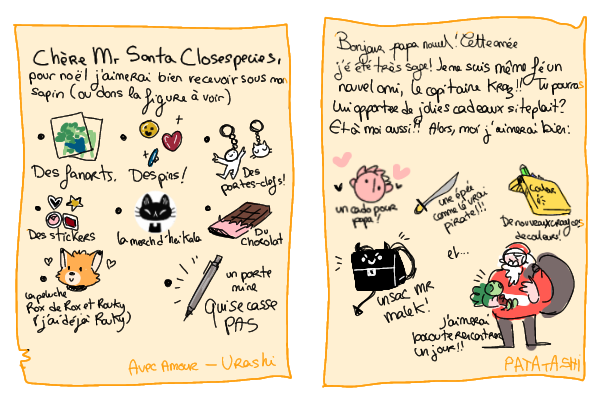 Chère Mr Santa Closespecies,
pour noël j'aimerai bien recevoir sous mon
sapin (ou dans la figure à voir)
Des fanarts.
Des pins!
Des
portes-clefs!
Des stickers
la merch d'heikala
Du
chocolat
la peluche
Rox de Rox et Rouky
(j'ai déjà Rouky)
un porte
mine
Qui se casse
PAS
Avec Amour — Urashi
Bonjour papa nouel! Cette année
j'é été très sage! Je me suis même fé un
nouvel ami, le capitaine Krog!! Tu pourras
lui apporter de jolies cadeaux siteplait?
Et à moi aussi!! Alors, moi j'aimerai bien:
un cado pour
papa!
une épée
comme le vrai
pirate!!!
De nouveaux crayons
de couleurs!
un sac mr
malek!
et...
j'aimerai
bocoute rencontrer
un jour!!
PATATASHI